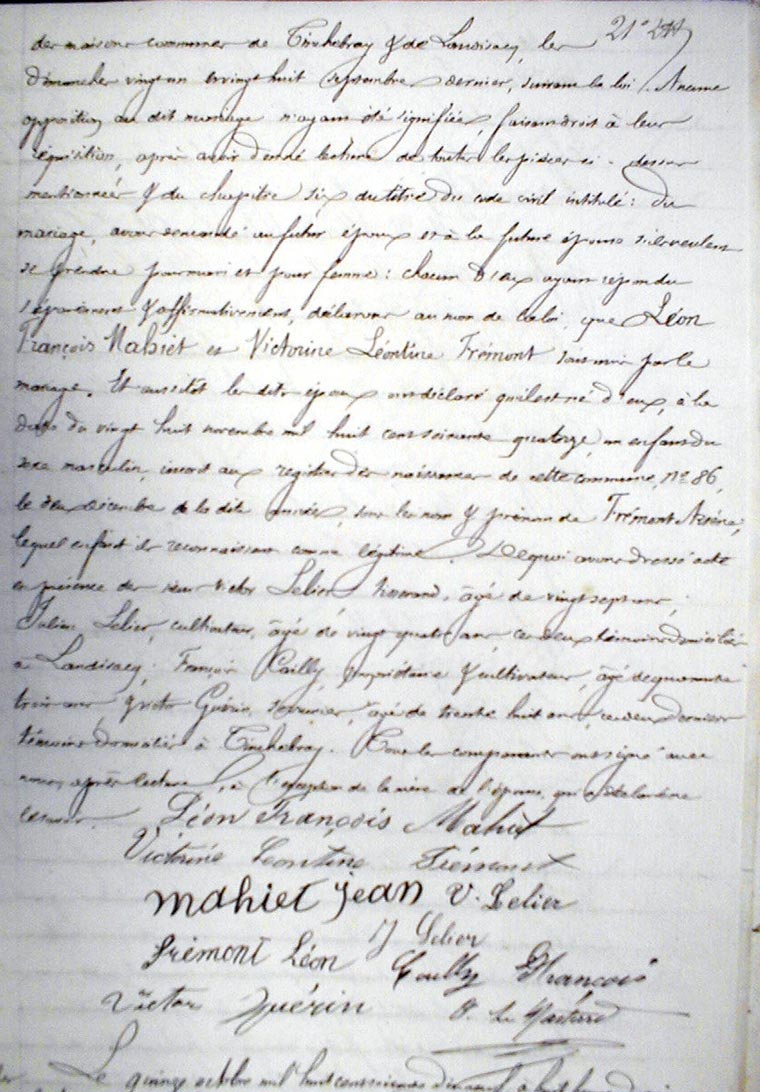 21e
des maisons communes de Tinchebray & de Landisacq, les
dimanches vingt un et vingt huit septembre dernier, suivant la loi. Aucune
opposition au dit mariage n'ayant été signifiée, faisant droit à leur
réquisition, après avoir donné lecture de toutes les pièces ci-dessus
mentionnées & du chapitre six du titre du code civil intitulé: Du
mariage, avons demandé au futur époux et à la future épouse s'ils veulent
se prendre pour mari et pour femme: chacun d'eux ayant répondu
séparément & affirmativement, déclarons au nom de la loi, que Léon
François Mahiet et Victorine Léontine Frémont sont unis par le
mariage. Et aussitôt les dits époux ont déclaré qu'il est né d'eux, à la
date du vingt huit novembre mil huit cent soixante quatorze, un enfant du
sexe masculin, inscrit aux registres des naissances de cette commune, No 86,
le deux décembre de la dite année, sous les nom & prénom de Frémont
lequel enfant ils reconnaissent comme légitime. De quoi avons dressé acte
en présence des sieurs Victor Lelier, tisserand, âgé de vingt sept ans;
Julien Lelier, cultivateur, âgé de vingt quatre ans, ces deux témoins domiciliés
à Landisacq; François Cailly, propriétaire & cultivateur, âgé de quarante
trois ans, & Victor Guérin, serrurier, âgé de trente huit ans, ces deux derniers
témoins domiciliés à Tinchebray. Tous les comparants ont signé avec
nous, après lecture, à l'exception de la mère de l'épouse, qui a déclaré ne
le savoir.
Léon François Mahiet
Victorine Léontine Frémont
mahiet jean V. Lelier
J Lelier
frémont Léon Cailly François
Victor Guérin
Le quinze octobre mil huit cent soixante dix neuf, à